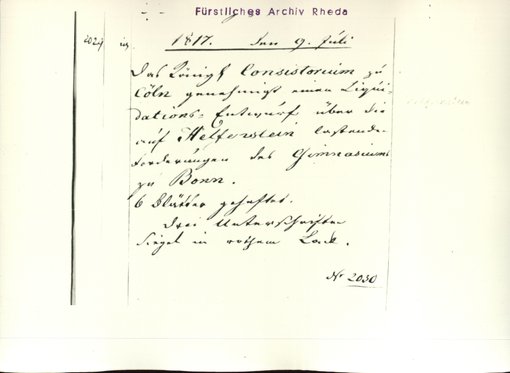 Fürstliches Archiv Rheda
1817. den 9. Juli
Das Königl Consistorium zu
Cöln genehmigt einen Liqui-
dations-Entwurf über die
auf Helferstein lastende
Forderungen des Gimnasiums
zu Bonn.
6 Blätter geheftet.
Drei Unterschriften
Siegel in rothem Lack.
No 2030